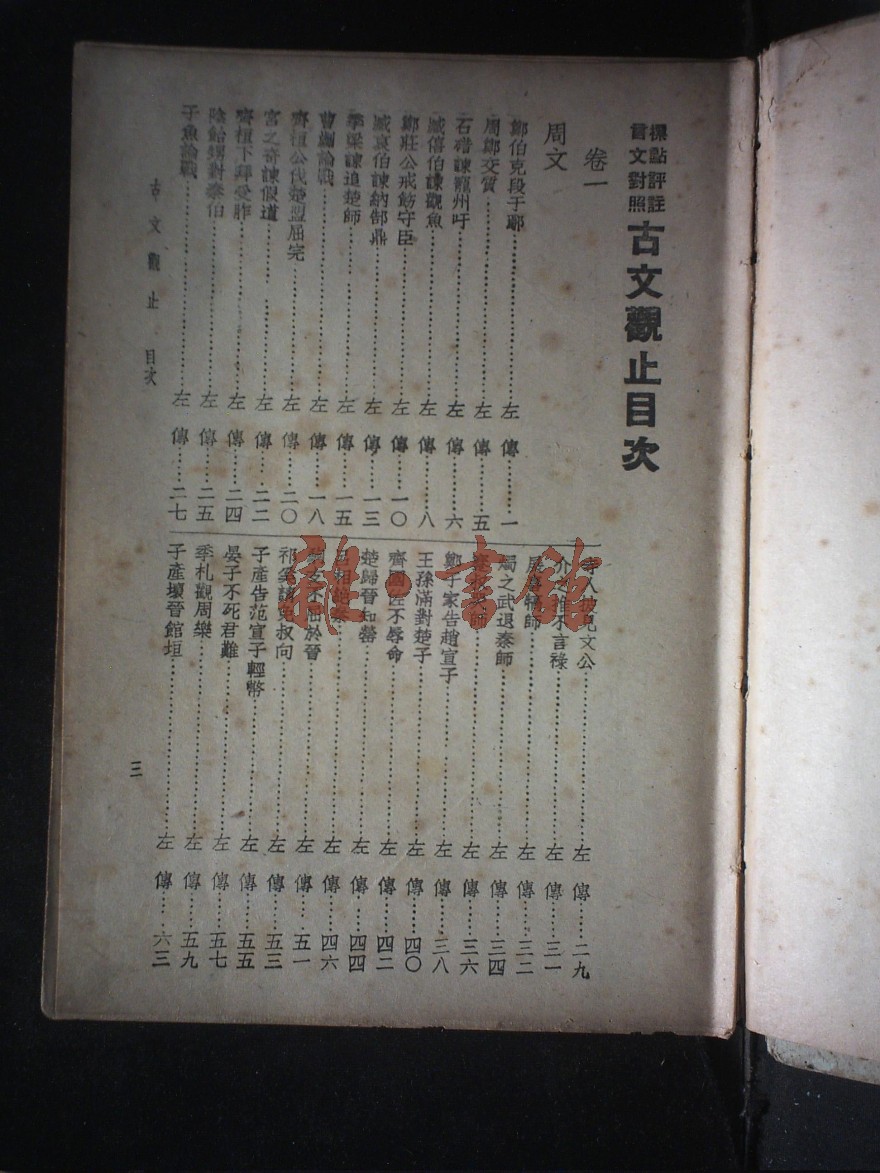 標點評註
言文對照
古文觀止目次
卷一
周文
鄭伯克段于鄢……左傳……一
周鄭交質……左傳……五
石碏諫寵州吁……左傳……六
臧僖伯諫觀魚……左傳……八
鄭莊公戒飭守臣……左傳……一〇
臧哀伯諫納郜鼎……左傳……一三
季梁諫追楚師……左傳……一五
曹劌論戰……左傳……一八
齊桓公伐楚盟屈完……左傳……二〇
宮之奇諫假道……左傳……二二
齊桓下拜受胙……左傳……二四
陰飴甥對秦伯……左傳……二五
子魚論戰……左傳……二七
寺人披見文公……左傳……二九
介之推不言祿……左傳……三一
展喜犒師……左傳……三二
燭之武退秦師……左傳……三四
蹇叔哭師……左傳……三六
鄭子家告趙宣子……左傳……三八
王孫滿對楚子……左傳……四〇
齊國佐不辱命……左傳……四二
楚歸晉知罃……左傳……四四
呂相絕秦……左傳……四六
駒支不屈於晉……左傳……五一
祁奚請免叔向……左傳……五三
子產告范宣子輕幣……左傳……五五
晏子不死君難……左傳……五七
季札觀周樂……左傳……五九
子產壞晉館垣……左傳……六三
古文觀止 目次
三
雜·書館